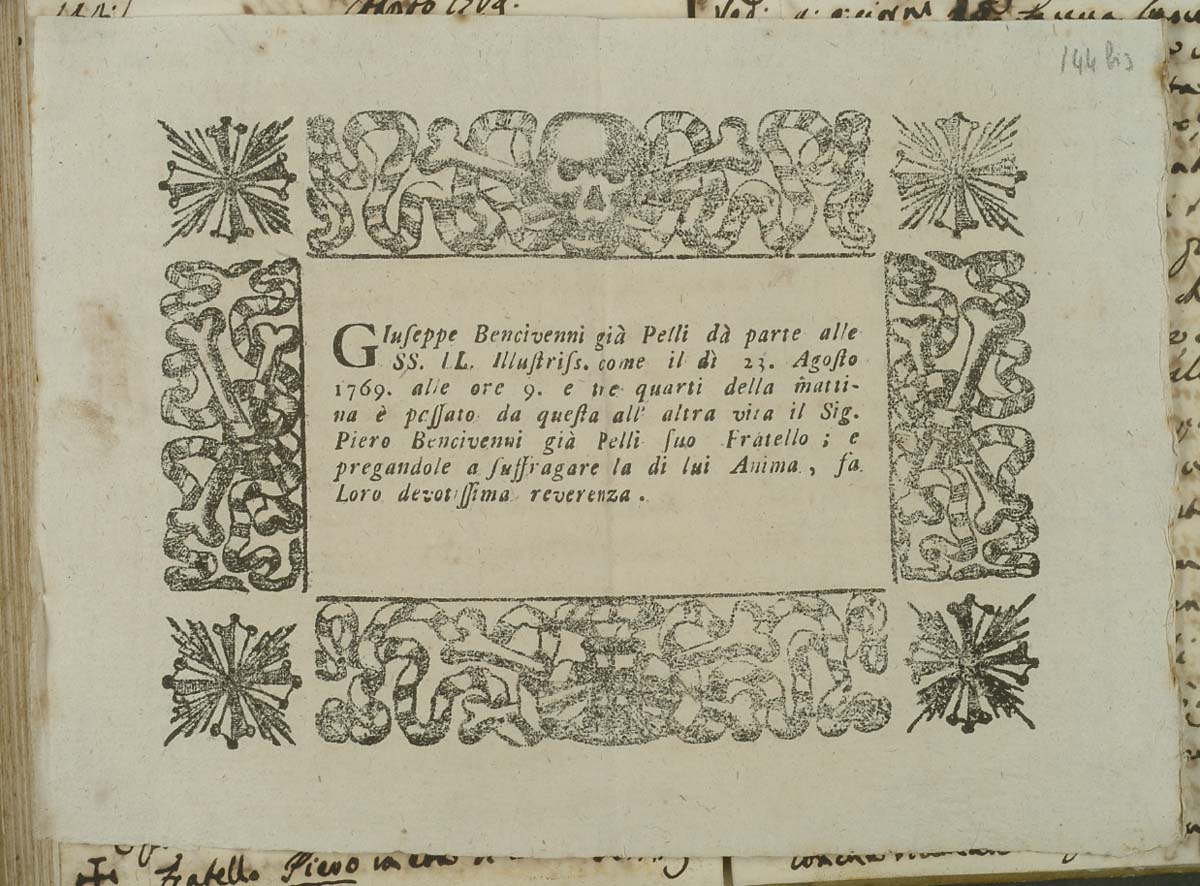 Anno 1769.
144 bis
GIuſeppe Bencivenni già Pelli dà parte alle
SS. LL. Illuſtriſs. come il dì 23. Agoſto
1769. alle ore 9. e tre quarti della matti-
na è paſſato da queſta all' altra vita il Sig.
Piero Bencivenni già Pelli ſuo Fratello; e
pregandole a ſuffragare la di lui Anima, fa
Loro devotiſſima reverenza.
Fratello Piero in età